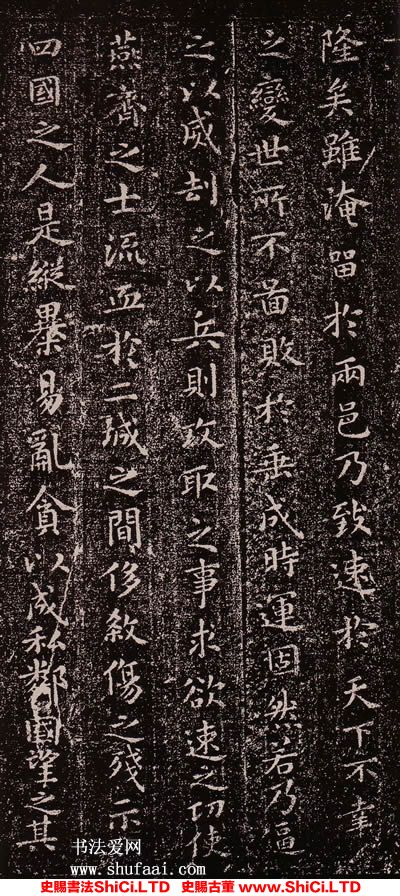 隆矣雖淹留於兩邑乃致速於天下不幸
之變世所不啚敗於垂成時運固然若乃逼
之以威劫之以兵則攻取之事求欲速之功使
燕齊之士流血於二城之間侈殺傷之殘示
四國之人是縱暴易亂貪以成私鄰國望之其
书法爱网
www.shufaai.com
史賜書法ShiCi.LTD 史賜古董 www.ShiCi.LTD